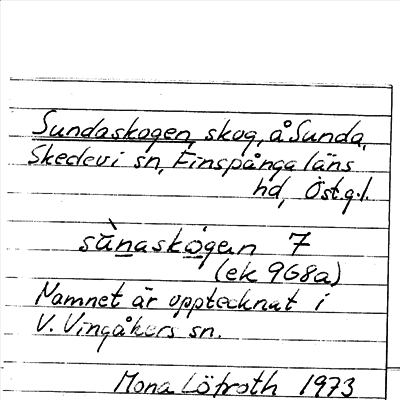 Sundaskogen, skog, å Sunda,
Skedevi sn, Finspånga läns
hd, Östg.l.
sùnaskógen 7
(ek 9G8a)
Namnet är upptecknat i
V. Vingåkers sn.
Mona Löfroth 1973